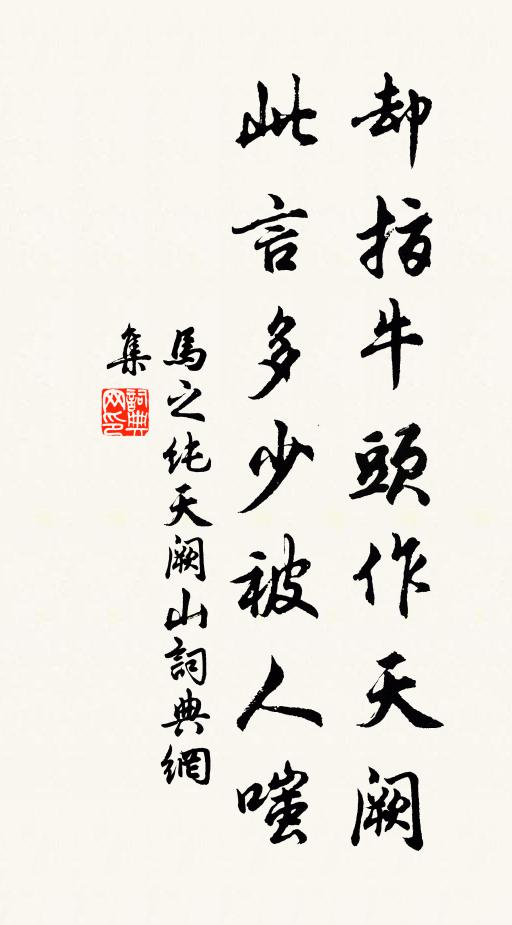 却指牛頭作天闕
此言多少被人嗤
馬之純天闕山詞典網
集
詞典
网印